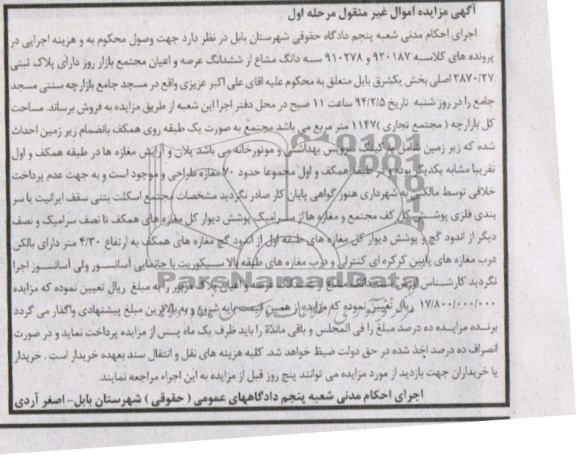 آگهی مزایده اموال غیر منقول مرحله اول
اجرای احکام مدنی شعبه پنجم دادگاه حقوقی شهرستان بابل در نظر دارد جهت وصول محکوم به و هزینه اجرایی در
پرونده های کلاسه ۹۲۰۱۸۷ و ۹۱۰۲۷۸ سه دانگ مشاع از ششدانگ عرصه و اعیان مجتمع بازار روز دارای پلاک ثبتی
۲۸۷۰/۲۷ اصلی بخش یکشرق بابل متعلق به محکوم علیه اقای علی اکبر عزیزی واقع در مسجد جامع بازارچه سنتی مسجد
جامع را در روز شنبه تاریخ ۹۴/۲/۵ ساعت ۱۱ صبح در محل دفتر اجرا این شعبه از طریق مزایده به فروش برساند. مساحت
کل بازارچه ( مجتمع تجاری ) ۱۱۴۷ متر مربع می باشد مجتمع به صورت یک طبقه روی همکف بانضمام زیر زمین احداث
شده که زیر زمین شامل پارکینگ سرویس بهداشتی و موتورخانه می باشد پلان و آرایش مغازه ها در طبقه همکف و اول
تقریبا مشابه یکدیگر بوده و در طبقه همکف و اول مجموعا حدود ۷۰ مغازه طراحی و موجود است و به جهت عدم پرداخت
خلافی توسط مالکین به شهرداری هنوز گواهی پایان کار صادر نگردید مشخصات مجتمع اسکلت بتنی سقف ایرانیت با سر
بندی فلزی پوشش کل کف مجتمع و مغازه ها از سرامیک پوشش دیوار کل مغازه های همکف تا نصف سرامیک و نصف
دیگر از اندود گچ و پوشش دیوار کل مغازه های طبقه اول از اندود گچ مغازه های همکف به ارتفاع ۴/۳۰ متر دارای بالکن
درب مغازه های پایین کرکره ای کنترلی و درب مغازه های طبقه بالا سیکوریت با جانمایی آسانسور ولی آسانسور اجرا
نگردید کارشناس ارزش سه دانگ مشاع از ششدانگ عرصه و اعیان پلاک مزبور را به مبلغ ریال تعیین نموده که مزایده
۱۷/۸۰۰/۰۰۰/۰۰۰ ریال تعیین نموده که مزایده از همین قیمت پایه شروع و به بالاترین مبلغ پیشنهادی واگذار می گردد
برنده مزایده ده درصد مبلغ را فی المجلس و باقی مانده را باید ظرف یک ماه پس از مزایده پرداخت نماید و در صورت
انصراف ده درصد اخذ شده در حق دولت ضبط خواهد شد. کلیه هزینه های نقل و انتقال سند بعهده خریدار است . خریدار
یا خریداران جهت بازدید از مورد مزایده می توانند پنج روز قبل از مزایده به این اجراء مراجعه نمایند.
اجرای احکام مدنی شعبه پنجم دادگاههای عمومی ( حقوقی ) شهرستان بابل- اصغر آردی
ParsNamadData